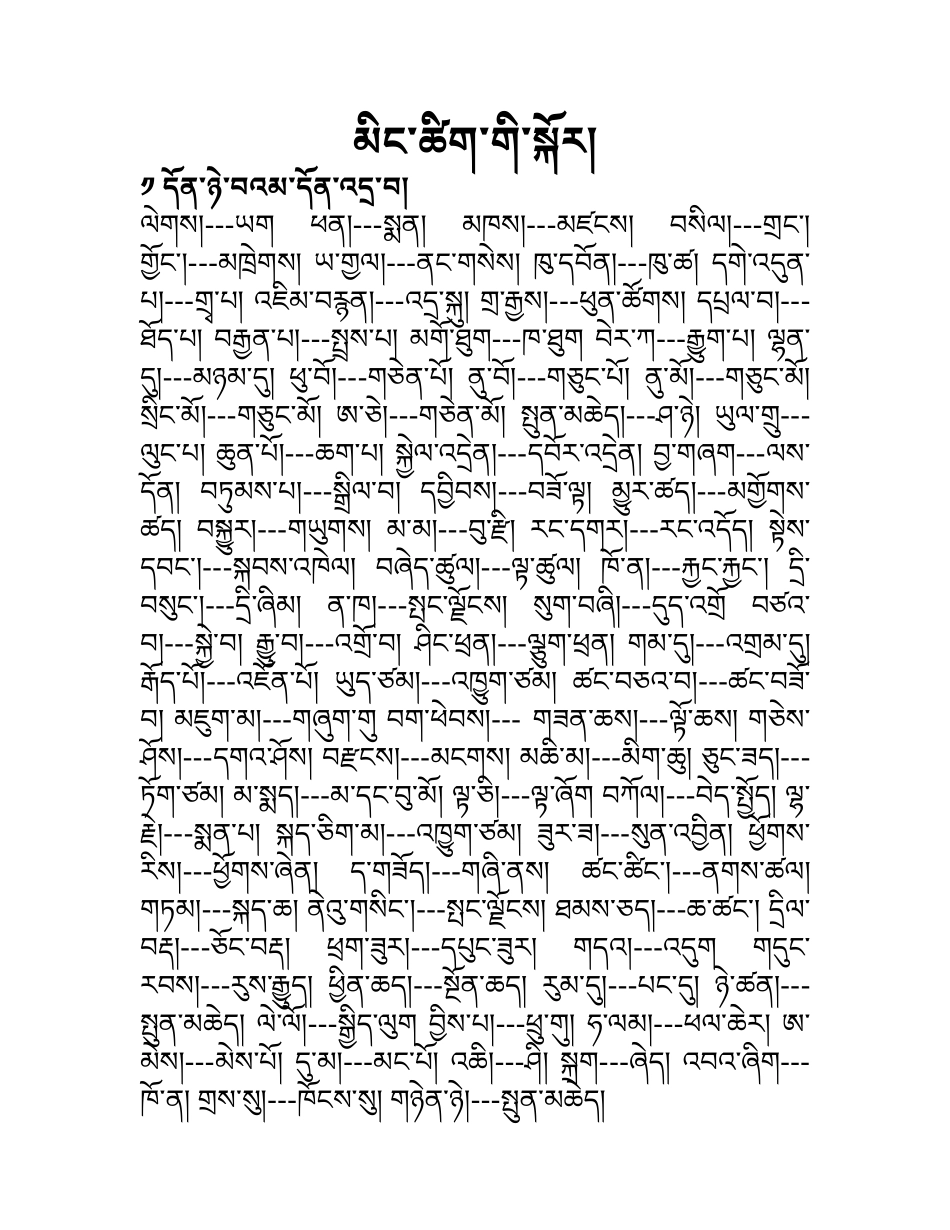 མིང་ཚིག་གི་སྐོར།
༡ དོན་ཉེ་བའམ་དོན་འདྲ་བ།
ལེགས།---ཡག ཕན།---སྨན། མཁས།---མཛངས། བསིལ།---གྲང་།
གྱོང་།---མཁྲེགས། ཡ་གྱལ།---ནང་གསེས། ཁུ་དབོན།---ཁུ་ཚ། དགེ་འདུན་
པ།---གྲྭ་པ། འཇིམ་བརྙན།---འདྲ་སྐུ། གྲ་རྒྱས།---ཕུན་ཚོགས། དཔྲལ་བ།---
ཐོད་པ། བརྒྱན་པ།---སྤྲས་པ། མགོ་ཐུག---ཁ་ཐུག བེར་ཀ---རྒྱུག་པ། ལྷན་
དུ།---མཉམ་དུ། ཕུ་བོ།---གཅེན་པོ། ནུ་བོ།---གཅུང་པོ། ནུ་མོ།---གཅུང་མོ།
སྲིང་མོ།---གཅུང་མོ། ཨ་ཅེ།---གཅེན་མོ། སྤུན་མཆེད།---ཤ་ཉེ། ཡུལ་གྲུ---
ལུང་པ། ཆུན་པོ།---ཆག་པ། སྐྱེལ་འདྲེན།---དབོར་འདྲེན། བྱ་གཞག---ལས་
དོན། བཏུམས་པ།---སྒྲིལ་བ། དབྱིབས།---བཟོ་ལྟ། མྱུར་ཚད།---མགྱོགས་
ཚད། བསྐྱུར།---གཡུགས། མ་མ།---བུ་རྫི། རང་དགར།---རང་འདོད། སྟེས་
དབང་།---སྐབས་འཁེལ། བཞེད་ཚུལ།---ལྟ་ཚུལ། ཁོ་ན།---རྐྱང་རྐྱང་། དྲི་
བསུང་།---དྲི་ཞིམ། ན་ཁ།---སྤང་ལྗོངས། སུག་བཞི།---དུད་འགྲོ བཙའ་
བ།---སྐྱེ་བ། རྒྱུ་བ།---འགྲོ་བ། ཤིང་ཕྲན།---ལྕུག་ཕྲན། གམ་དུ།---འགྲམ་དུ།
རྒོད་པོ།---འཇོན་པོ། ཡུད་ཙམ།---འཁྱུག་ཙམ། ཚང་བཅའ་བ།---ཚང་བཟོ་
བ། མཇུག་མ།---གཞུག་གུ བག་ཕེབས།--- གཟན་ཆས།---ལྟོ་ཆས། གཅེས་
ཤོས།---དགའ་ཤོས། བརྫངས།---མངགས། མཆི་མ།---མིག་ཆུ། ཅུང་ཟད།---
ཏོག་ཙམ། མ་སྨད།---མ་དང་བུ་མོ། ལྟ་ཅི།---ལྟ་ཞོག བཀོལ།---བེད་སྤྱོད། ལྷ་
རྗེ།---སྨན་པ། སྐད་ཅིག་མ།---འཁྱུག་ཙམ། ཟུར་ཟ།---སུན་འབྱིན། ཕྱོགས་
རིས།---ཕྱོགས་ཞེན། ད་གཟོད།---གཞི་ནས། ཚང་ཚིང་།---ནགས་ཚལ།
གཏམ།---སྐད་ཆ། ནེའུ་གསིང་།---སྤང་ལྗོངས། ཐམས་ཅད།---ཆ་ཚང་། དྲིལ་
བརྡ།---ཅོང་བརྡ། ཕྲག་ཟུར།---དཔུང་ཟུར། གདའ།---འདུག གདུང་
རབས།---རུས་རྒྱུད། ཕྱིན་ཆད།---སྔོན་ཆད། རུམ་དུ།---པང་དུ། ཉེ་ཚན།---
སྤུན་མཆེད། ལེ་ལོ།---སྒྱིད་ལུག བྱིས་པ།---ཕྲུ་གུ། ཧ་ལམ།---ཕལ་ཆེར། ཨ་
མེས།---མེས་པོ། དུ་མ།---མང་པོ། འཆི།---ཤི། སྐྲག---ཞེད། འབའ་ཞིག---
ཁོ་ན། གྲས་སུ།---ཁོངས་སུ། གཉེན་ཉེ།---སྤུན་མཆེད།